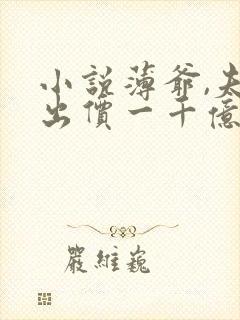 小説薄爺,
出價一千億
嚴維巍